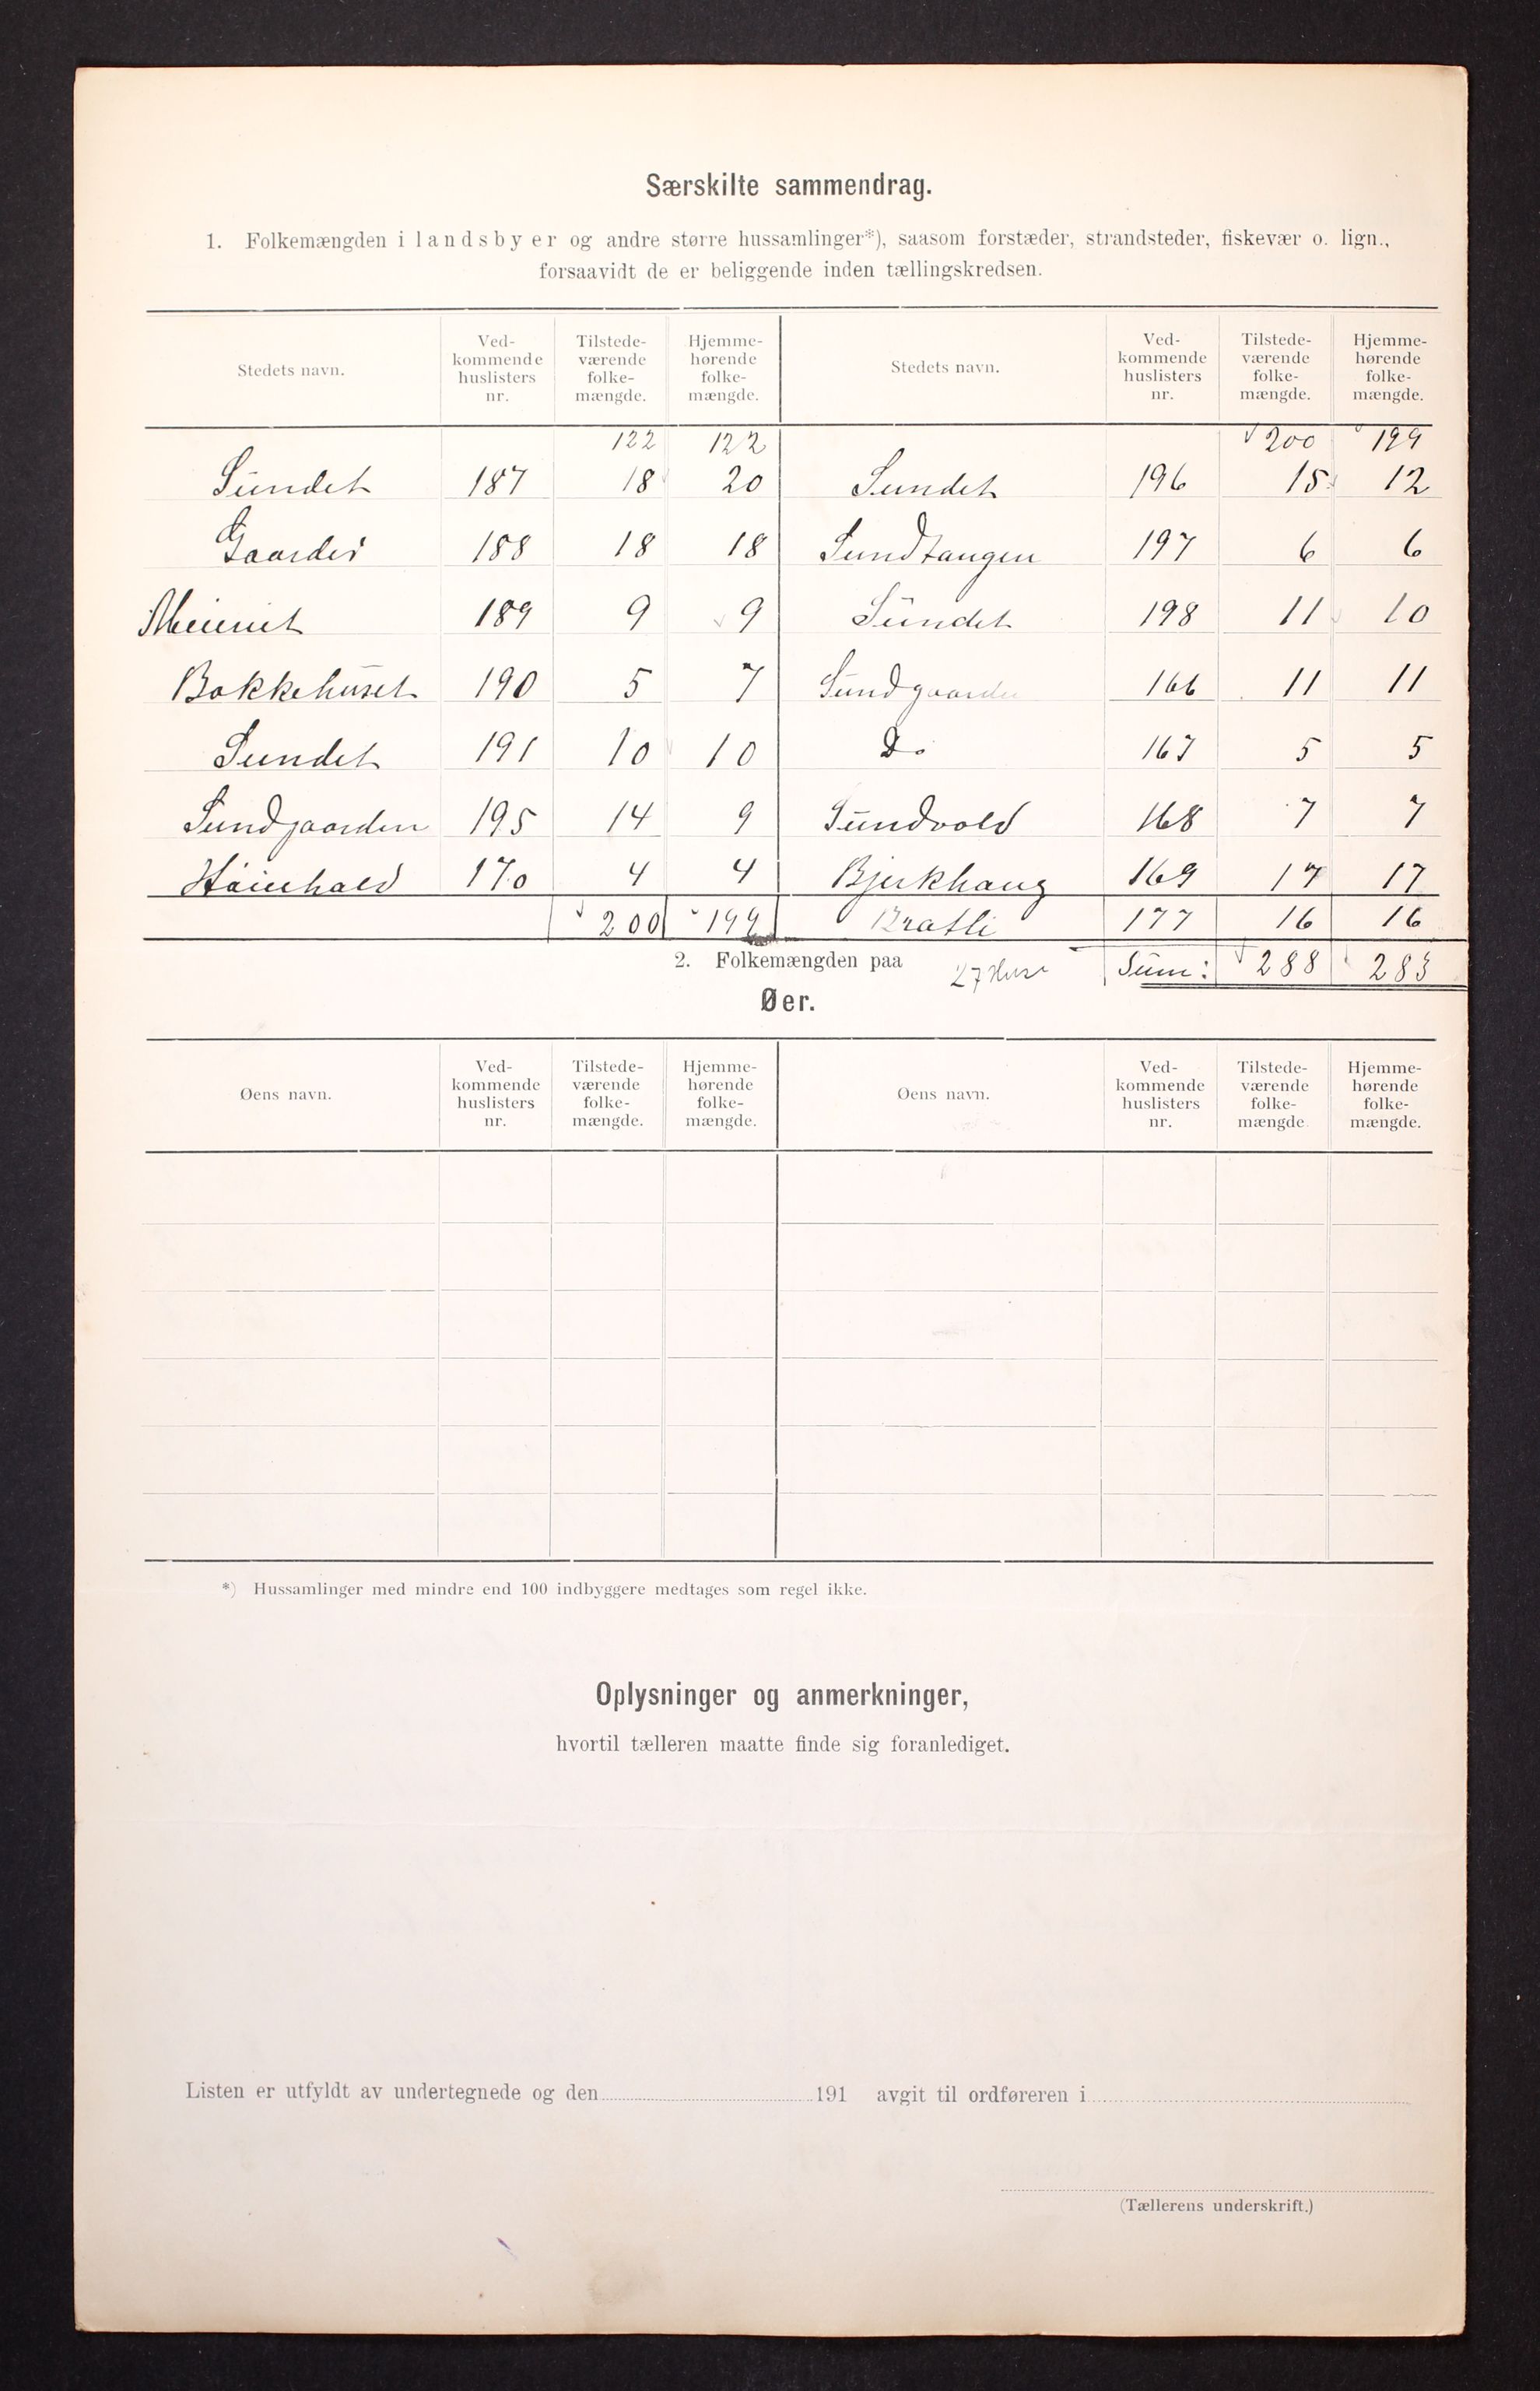 Særskilte sammendrag.
1. Folkemængden i landsbyer og andre større hussamlinger*), saasom forstæder, strandsteder, fiskevær o. lign.,
forsaavidt de er beliggende inden tællingskredsen.
Stedets navn. Ved-kommende huslisters nr. Tilstede-værende folke-mængde. Hjemme-hørende folke-mængde. Stedets navn. Ved-kommende huslisters nr. Tilstede-værende folke-mængde. Hjemme-hørende folke-mængde.
122 122 200 199
Sundet 187 18 20 Sundet 196 15 12
Gaarder 188 18 18 Sundtangen 197 6 6
Meieriet 189 9 9 Sundet 198 11 10
Bakkehuset 190 5 7 Sundgaarden 166 11 11
Sundet 191 10 10 Do 167 5 5
Sundgaarden 195 14 9 Sundvold 168 7 7
170 4 4 Bjerkhaug 169 17 17
200 199 Bratli 177 16 16
2. Folkemængden paa 27 Huse Sum: 288 283
Øer.
Øens navn. Ved-kommende huslisters nr. Tilstede-værende folke-mængde. Hjemme-hørende folke-mængde. Øens navn. Ved-kommende huslisters nr. Tilstede-værende folke-mængde Hjemme-hørende folke-mængde.
*) Hussamlinger med mindre end 100 indbyggere medtages som regel ikke.
Oplysninger og anmerkninger,
hvortil tælleren maatte finde sig foranlediget.
Listen er utfyldt av undertegnede og den 191 avgit til ordføreren i
(Tællerens underskrift.)